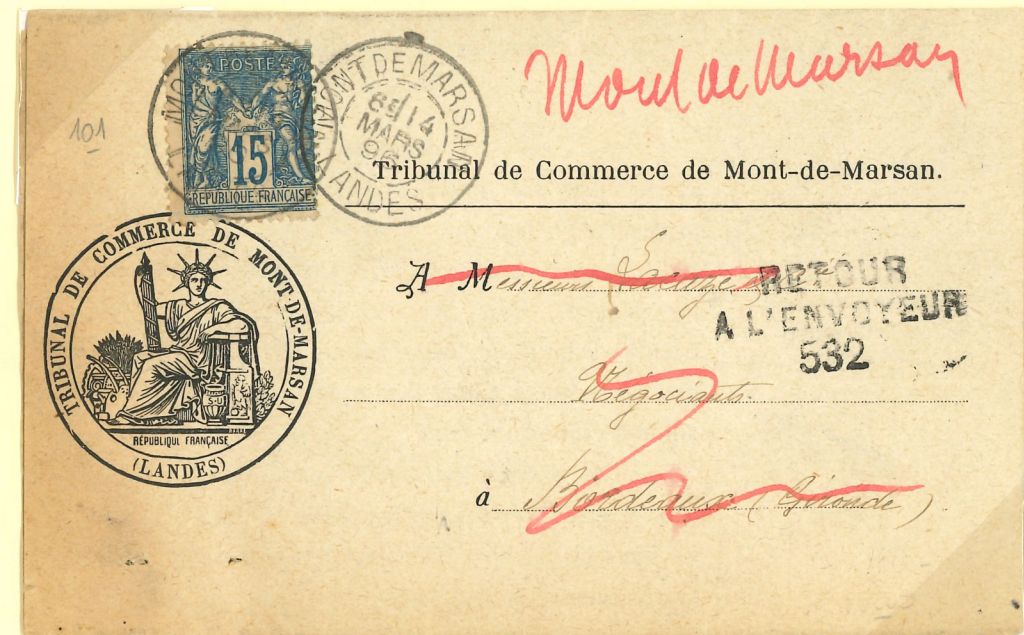 Mont de Marsan
POSTE
15
REPUBLIQUE FRANÇAISE
MONT DE MARSAN
14
MARS
96
LANDES
101
Tribunal de Commerce de Mont-de-Marsan.
TRIBUNAL DE COMMERCE DE MONT-DE-MARSAN
RÉPUBLIQUE FRANÇAISE
(LANDES)
A Messieurs
RETOUR
A L'ENVOYEUR
532
Négociants.
à Bordeaux (Gironde)